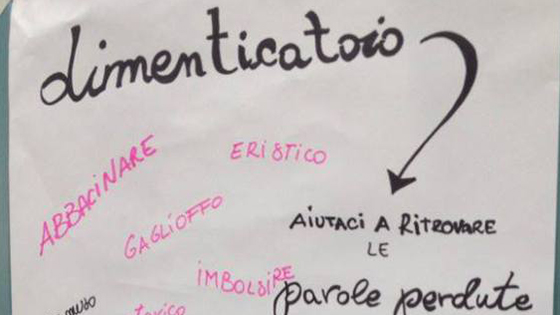 dimenticatoio
ERISTICO
ABBACINARE
GAGLIOFFO
AIUTACI A RITROVARE
LE
IMBOLSIRE
parole perdute